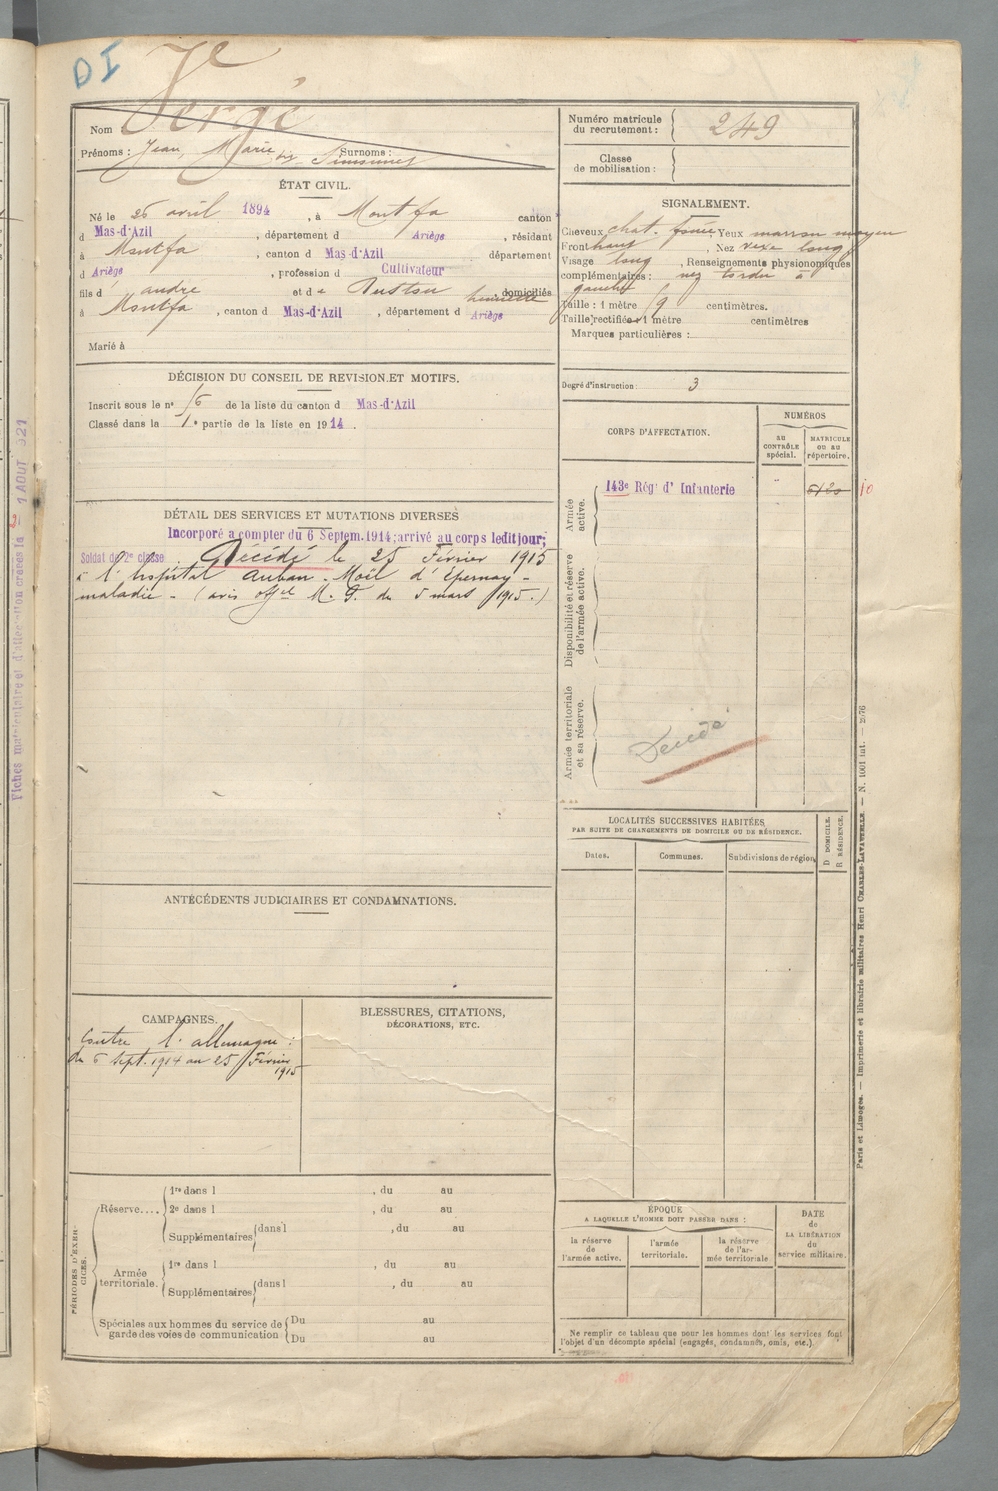 DI
Nom Vergé
Prénoms : Jean, Marie dit Surnoms :
ÉTAT CIVIL.
Né le 26 avril 1894, à Montfa canton
d Mas-d'Azil, département d Ariège, résidant
à Montfa, canton d Mas-d'Azil département
d Ariège, profession d Cultivateur
fils d' andré et de henriette, domiciliés
à Montfa, canton d Mas-d'Azil, département d Ariège
Marié à
DÉCISION DU CONSEIL DE REVISION ET MOTIFS.
Inscrit sous le n° 16 de la liste du canton d Mas-d'Azil
Classé dans la 1e partie de la liste en 1914.
DÉTAIL DES SERVICES ET MUTATIONS DIVERSES
Incorporé a compter du 6 Septem. 1914; arrivé au corps ledit jour;
Soldat de 2e classe. Décédé le 25 Février 1915
à l'hopital Auban-Moët d'Epernay -
maladie - (avis offel M. G. du 5 mars 1915.)
ANTÉCÉDENTS JUDICIAIRES ET CONDAMNATIONS.
CAMPAGNES.
Contre l'allemagne :
du 6 Sept. 1914 au 25 Février
1915
BLESSURES, CITATIONS,
DÉCORATIONS, ETC.
PÉRIODES D'EXERCICES.
Réserve.... 1re dans l , du au
2e dans l , du au
Supplémentaires dans l , du au
Armée territoriale. 1re dans l , du au
Supplémentaires dans l , du au
Spéciales aux hommes du service de garde des voies de communication Du au
Du au
Numéro matricule du recrutement : 249
Classe de mobilisation :
SIGNALEMENT.
Cheveux chat. foncé Yeux marron moyen
Front haut, Nez vexe long
Visage long, Renseignements physionomiques
complémentaires : nez tordu à
gauche
Taille : 1 mètre 69 centimètres.
Taille rectifiée : 1 mètre centimètres
Marques particulières :
Degré d'instruction : 3
CORPS D'AFFECTATION.
NUMÉROS
au CONTRÔLE spécial.
MATRICULE ou au répertoire.
Armée active.
143e Rég' d' Infanterie
Disponibilité et réserve de l'armée active.
Armée territoriale et sa réserve.
Décédé
LOCALITÉS SUCCESSIVES HABITÉES
PAR SUITE DE CHANGEMENTS DE DOMICILE OU DE RÉSIDENCE.
Dates. Communes. Subdivisions de région.
D DOMICILE.
R RÉSIDENCE.
ÉPOQUE
A LAQUELLE L'HOMME DOIT PASSER DANS :
la réserve de l'armée active.
l'armée territoriale.
la réserve de l'armée territoriale
DATE de LA LIBÉRATION du service militaire.
Ne remplir ce tableau que pour les hommes dont les services font
l'objet d'un décompte spécial (engagés, condamnés, omis, etc.).
Paris et Limoges. — Imprimerie et librairie militaires Henri CHARLES-LAVAUZELLE. — N. 1001 int. — 2076